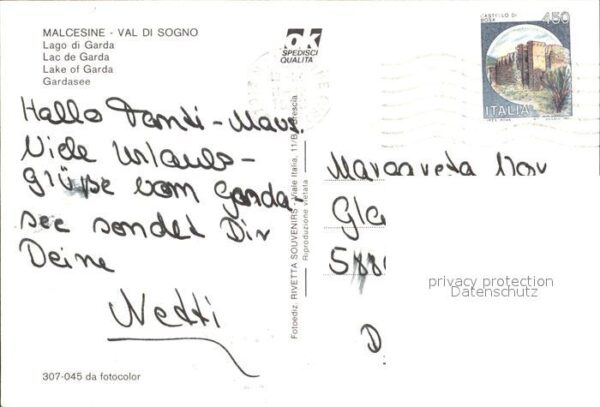 MALCESINE - VAL DI SOGNO
Lago di Garda
Lac de Garda
Lake of Garda
Gardasee
OK
SPEDISCI
QUALITA
CASTELLO DI
450
ITALIA
Hallo Tanti-Maus.
Viele Urlaubs-
grüße vom Garda-
see sendet Dir
Deine
Netti
Fotoediz. RIVETTA SOUVENIRS - Viale Italia, 11/B - Brescia
Riproduzione vietata
Margareta
Gla
588
D
privacy protection
Datenschutz
307-045 da fotocolor